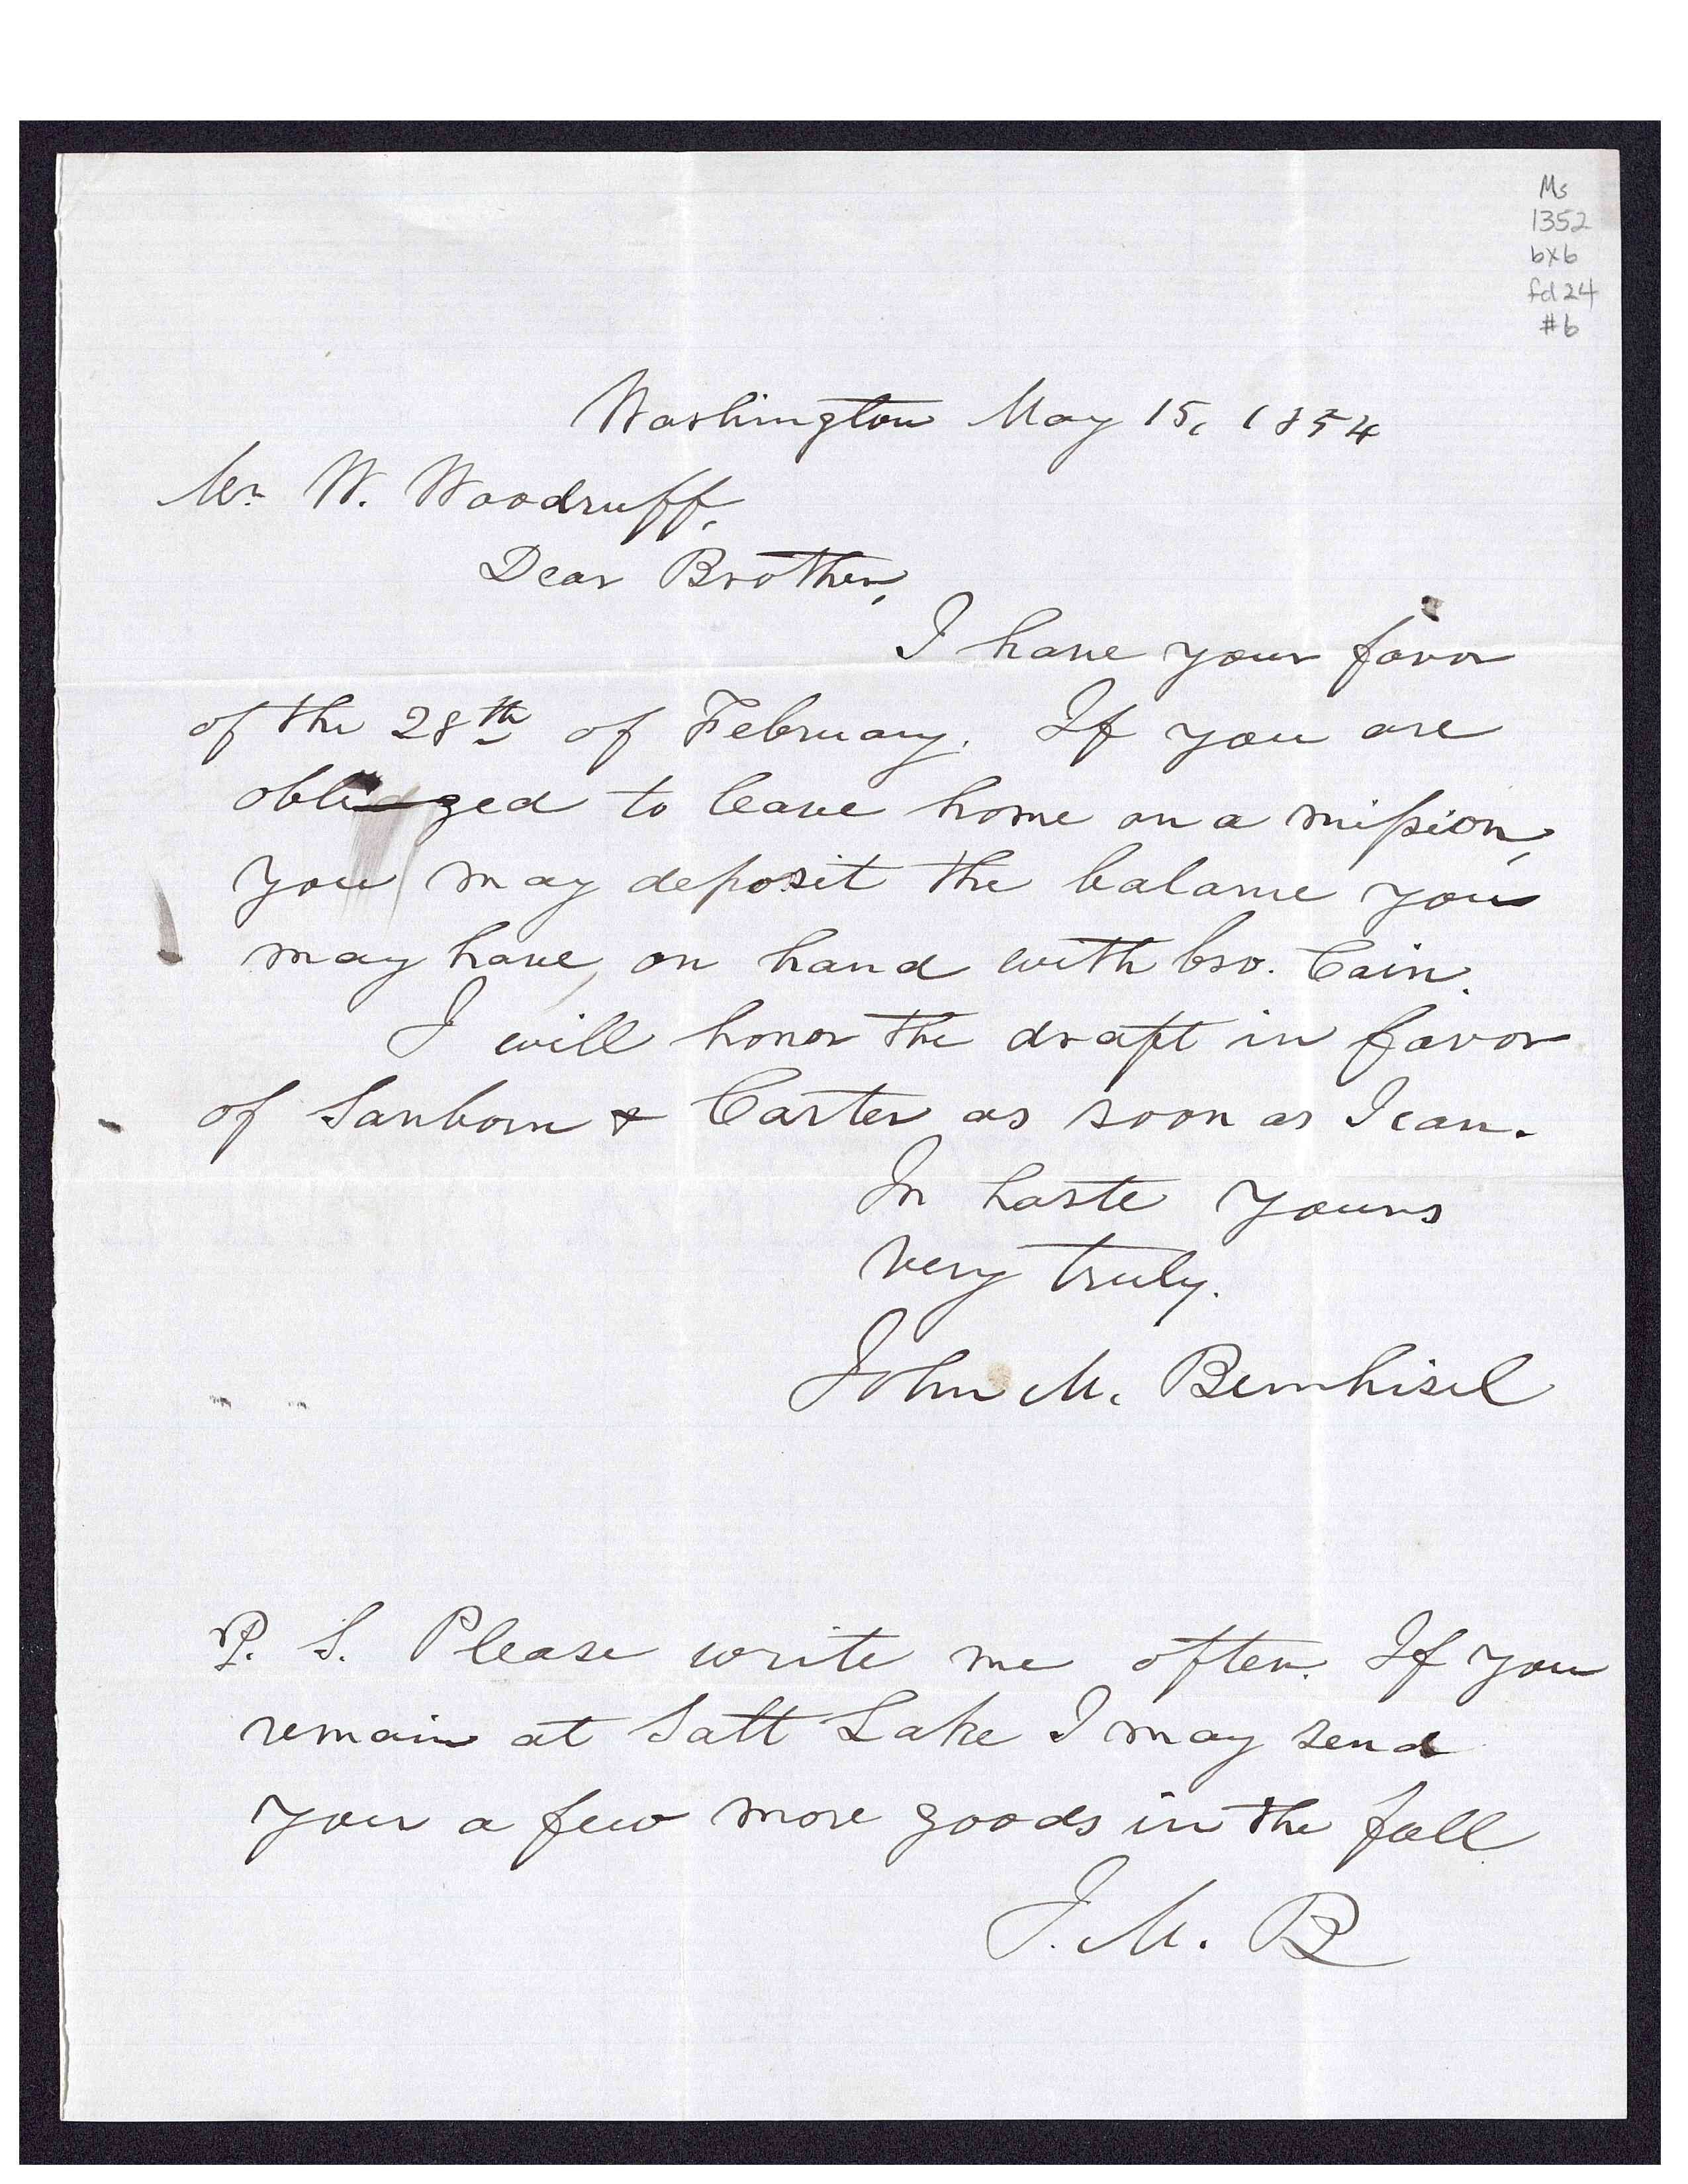 Ms
1352
bx6
fd 24
#6
Washington May 15, 1854
Mr W. Woodruff,
Dear Brother,
I have your favor
of the 28th of February. If you are
obliged to leave home on a mission,
you may deposit the balance you
may have, on hand with bro. Cain.
I will honor the draft in favor
of Sanborn & Carter as soon as I can.
In haste Yours
very truly.
John M. Bernhisel
P. S. Please write me often. If you
remain at Salt Lake I may send
you a few more goods in the fall
J. M. B